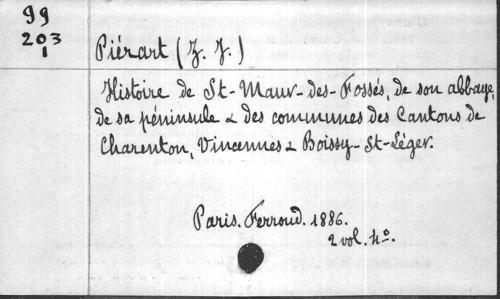 99
203
1
Piérart (Z. J.)
Histoire de St-Maur-des-Fossés, de son abbaye,
de sa péninsule & des communes des Cantons de
Charenton, Vincennes & Boissy-St-Léger.
Paris. Ferroud. 1886.
2 vol. 4o.